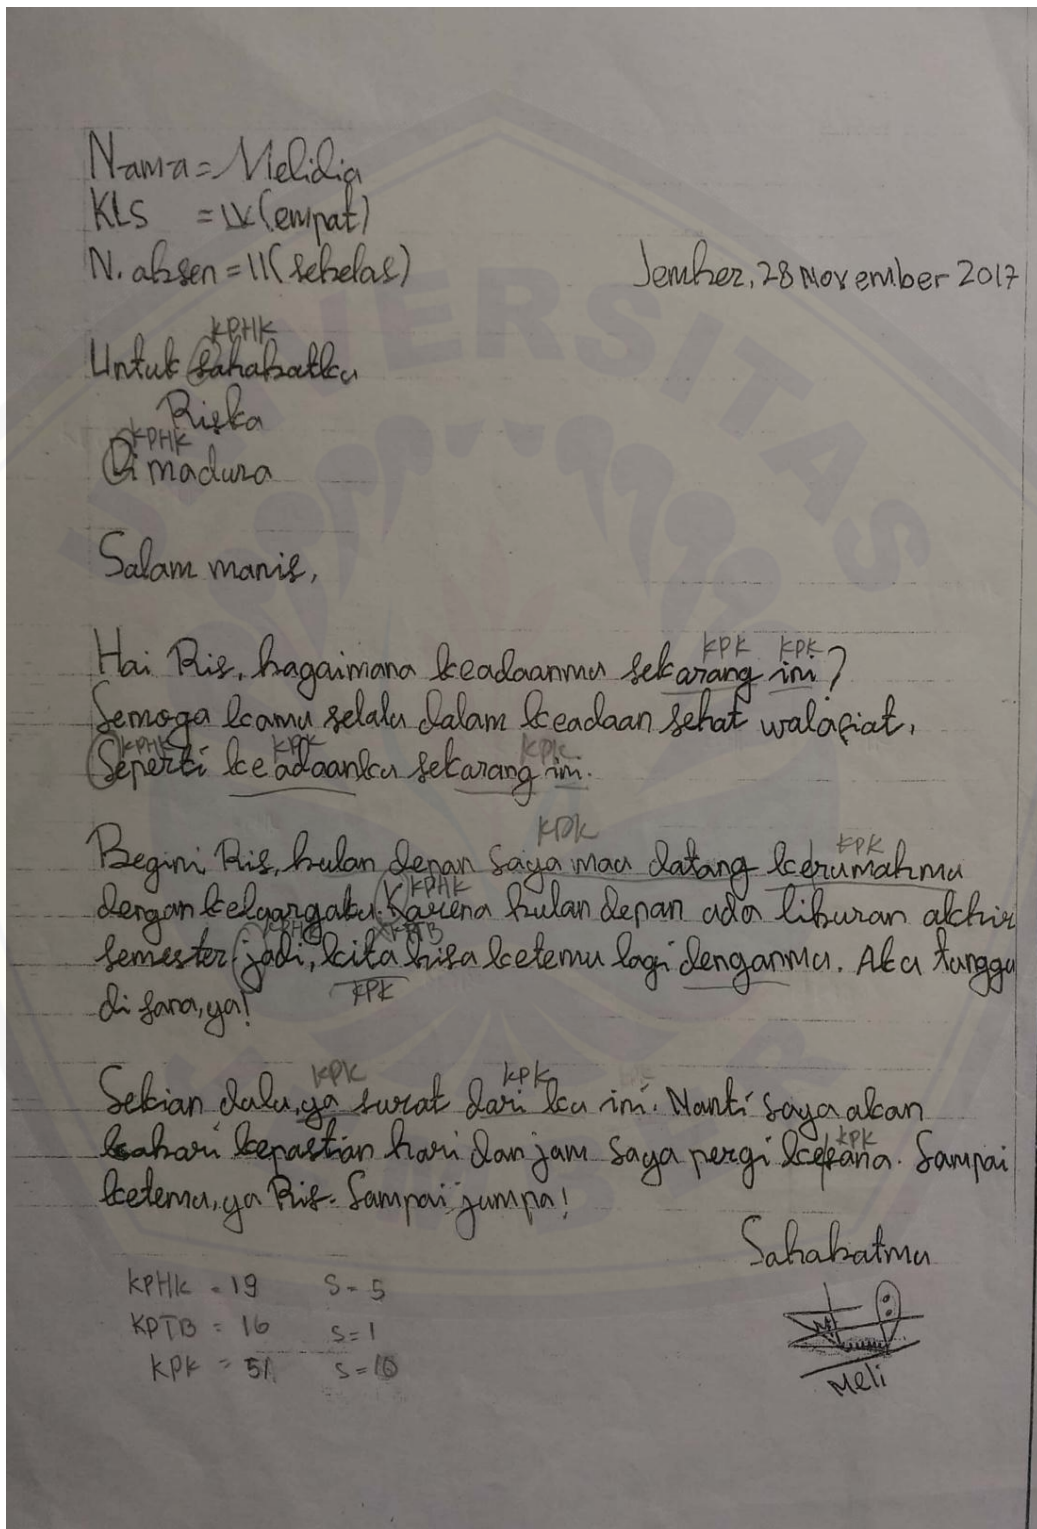 Nama = Melidia
KLS = IV (empat)
N. absen = 11 (sebelas)
Jember, 28 November 2017
KPHK
Untuk Sahabatku
Riska
KPHK
Di madura
Salam manis,
KPK KPK
Hai Ris, bagaimana keadaanmu sekarang ini?
Semoga kamu selalu dalam keadaan sehat walafiat,
KPHK KPK KPK
Seperti keadaanku sekarang ini.
KPK KPK
Begini, Ris, bulan depan saya mau datang kerumahmu
K KPHK
dengan keluargaku. Karena bulan depan ada liburan akhir
KPHK KPTB
semester jadi, kita bisa ketemu lagi denganmu. Aku tunggu
KPK
di sana, ya!
KPK KPK
Sekian dulu, ya surat dari ku ini. Nanti saya akan
kabari kepastian hari dan jam saya pergi kesana. Sampai
KPK
ketemu, ya Ris. Sampai jumpa!
Sahabatmu
Meli
KPHK = 19 S = 5
KPTB = 16 S = 1
KPK = 51 S = 10
UNIVERSITAS